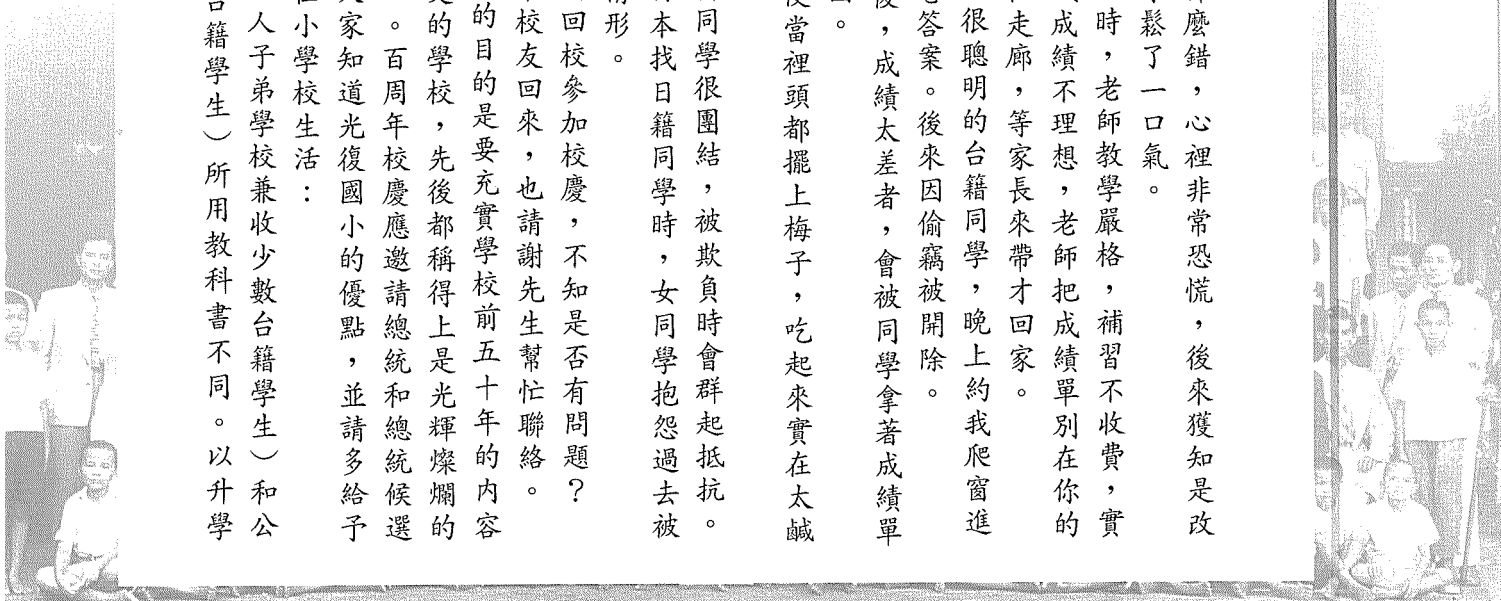 麼錯，心裡非常恐慌，後來獲知是改
鬆了一口氣。
時，老師教學嚴格，補習不收費，實
成績不理想，老師把成績單別在你的
走廊，等家長來帶才回家。
很聰明的台籍同學，晚上約我爬窗進
答案。後來因偷竊被開除。
後，成績太差者，會被同學拿著成績單
。
便當裡頭都擺上梅子，吃起來實在太鹹
同學很團結，被欺負時會群起抵抗。
本找日籍同學時，女同學抱怨過去被
情形。
回校參加校慶，不知是否有問題？
校友回來，也請謝先生幫忙聯絡。
的目的是要充實學校前五十年的內容
的學校，先後都稱得上是光輝燦爛的
。百周年校慶應邀請總統和總統候選
家知道光復國小的優點，並請多給予
小學校生活：
人子弟學校兼收少數台籍學生）和公
台籍學生）所用教科書不同。以升學